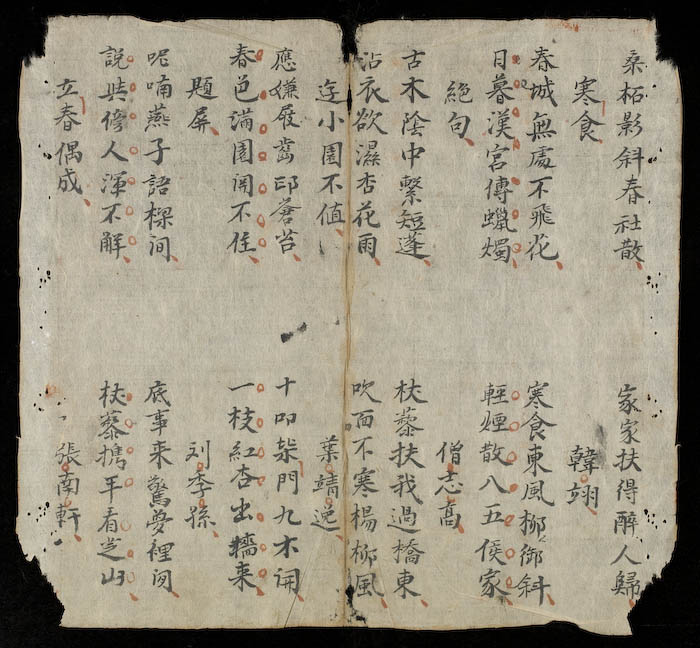 桑柘影斜春社散 家家扶得醉人歸
寒食 韓翊
春城無處不飛花 寒食東風柳御斜
日暮漢宮傳蠟燭 輕煙散八五侯家
絕句 僧志高
古木陰中繫短蓬 杖藜扶我過橋東
沾衣欲濕杏花雨 吹面不寒楊柳風
逰小園不值 葉靖逸
應嫌屐齒印蒼苔 十叩柴門九不開
春色滿園関不住 一枝紅杏出墻來
題屏 刘季孫
呢喃燕子語樑間 底事来驚夢裡間
說與傍人渾不解 杖藜携平看芝山
立春偶成 張南軒